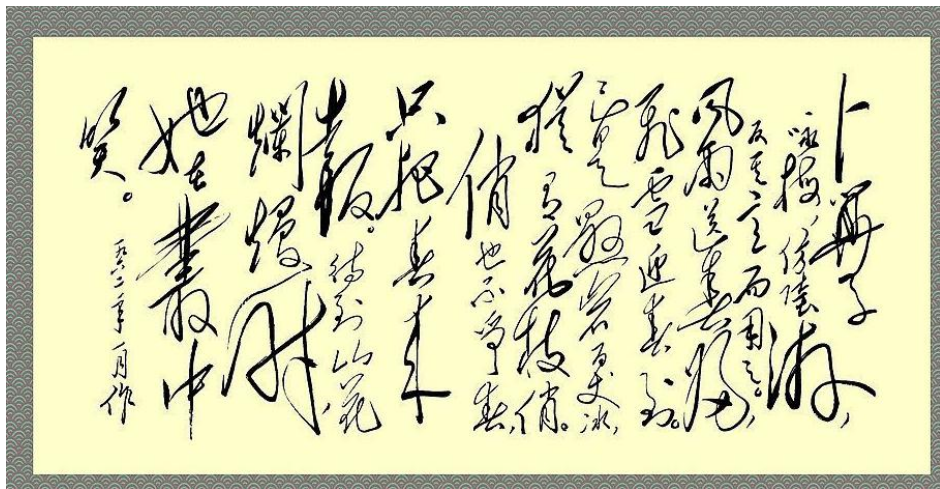 卜算子
咏梅,仿陸游,
反其意而用之。
風雨送春歸,
飛雪迎春到。
已是懸崖百丈冰,
猶有花枝俏。
俏也不爭春,
只把春來
春報。待到山花
爛熳時,
她在叢中
笑。一九六二年一月作